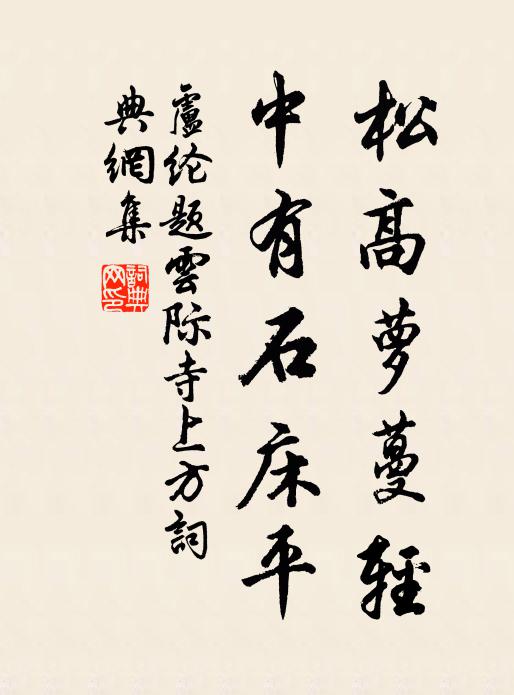 松高萝蔓輕
中有石床平
盧纶题雲际寺上方詞
典網集
詞典網印